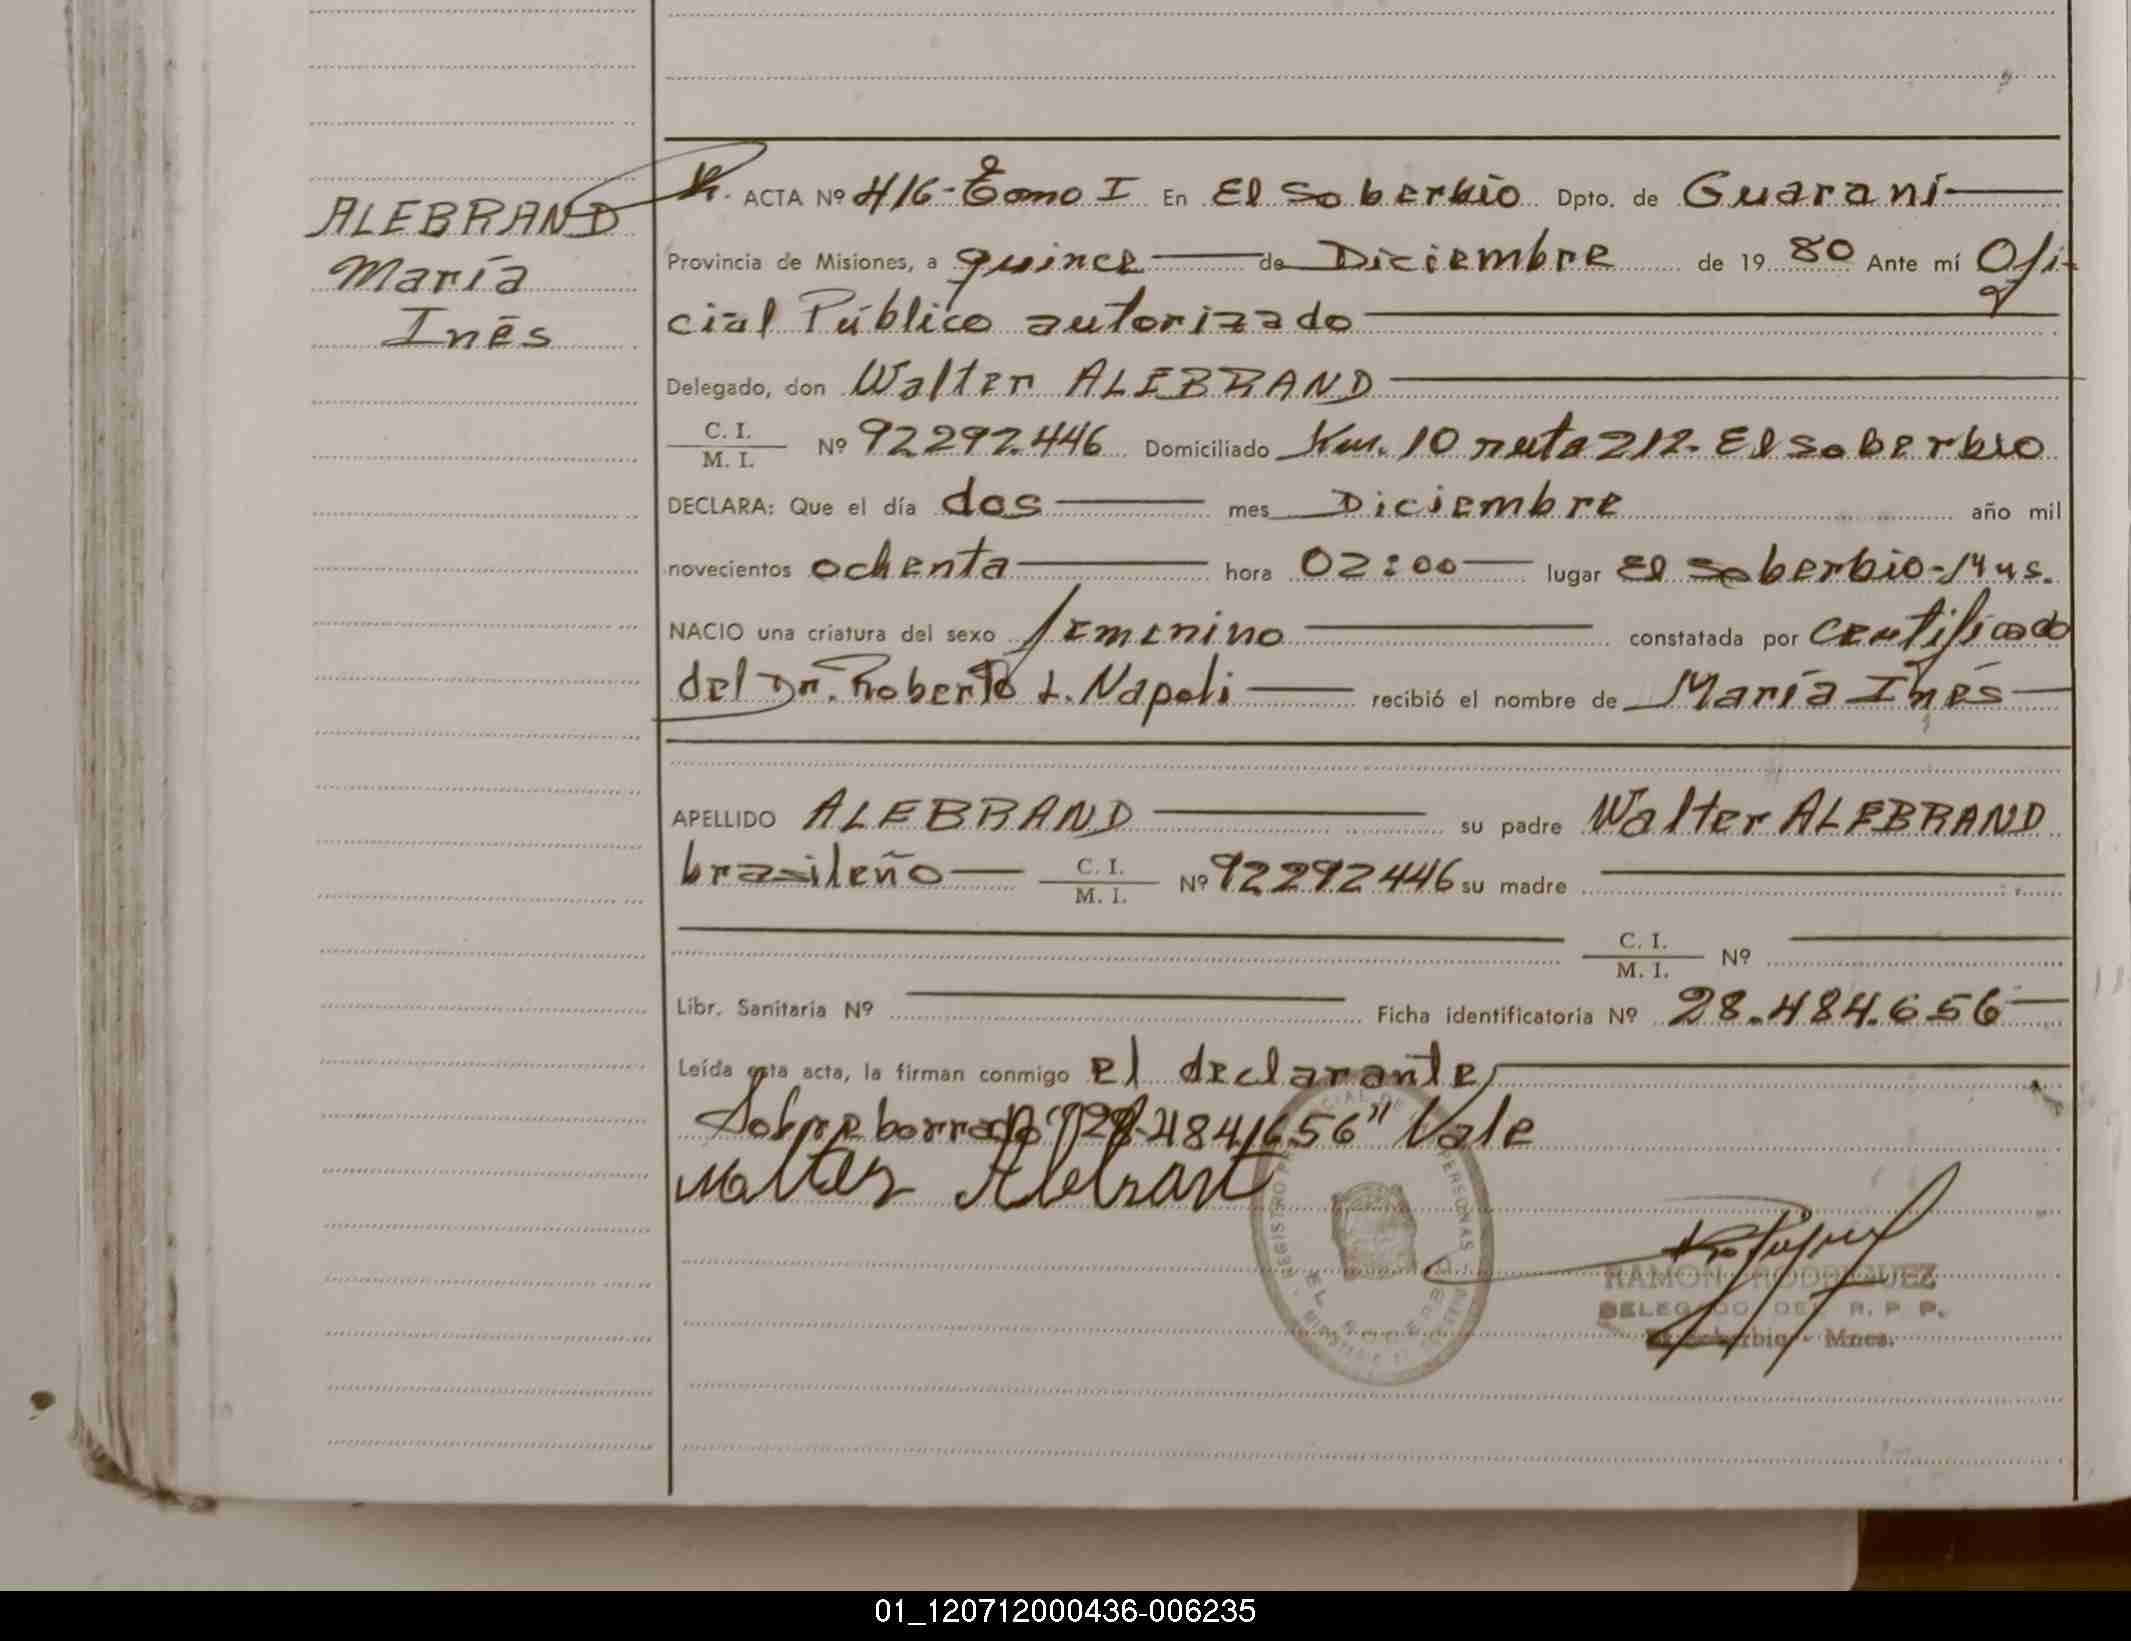 ALEBRAND
María
Inés
ACTA Nº 416-Tomo I En El Soberbio Dpto. de Guaraní
Provincia de Misiones, a quince de Diciembre de 1980 Ante mí Ofi-
cial Público autorizado
Delegado, don Walter ALEBRAND
C. I.
M. I. Nº 92292.446 Domiciliado Km. 10 ruta 212- El Soberbio
DECLARA: Que el día dos mes Diciembre año mil
novecientos ochenta hora 02:00 lugar El Soberbio-Mns.
NACIO una criatura del sexo femenino constatada por Certificado
del Dr. Roberto L. Napoli recibió el nombre de María Inés
APELLIDO ALEBRAND su padre Walter ALEBRAND
brasileño C. I.
M. I. Nº 92292446 su madre
C. I.
M. I. Nº
Libr. Sanitaria Nº Ficha identificatoria Nº 28.484.656
Leída esta acta, la firman conmigo el declarante,
Sobre borrado "28.484.656" Vale
Walter Alebrant
RAMON RODRIGUEZ
DELEGADO DEL R. P. P.
El Soberbio - Mnes.
01_120712000436-006235